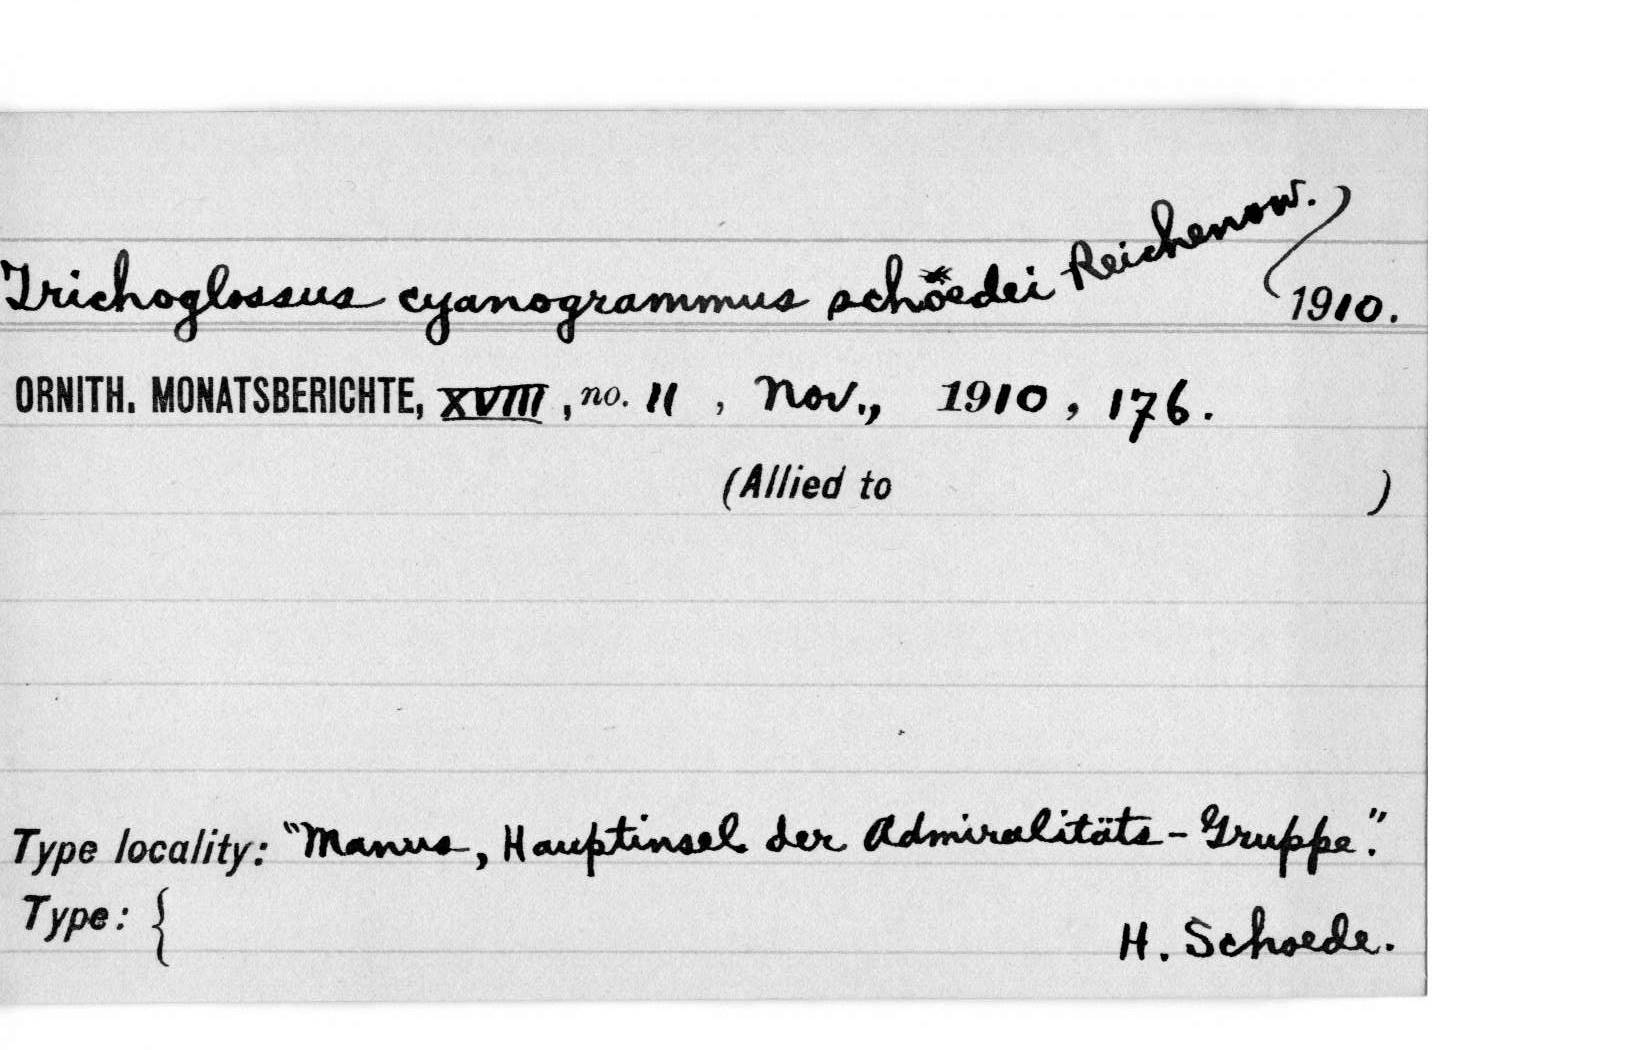 Trichoglossus cyanogrammus schoedei Reichenow.
1910.
ORNITH. MONATSBERICHTE, XVIII, no. 11, Nov., 1910, 176.
(Allied to )
Type locality: "Manus, Hauptinsel der Admiralitäts-Gruppe."
Type: {
H. Schoede.